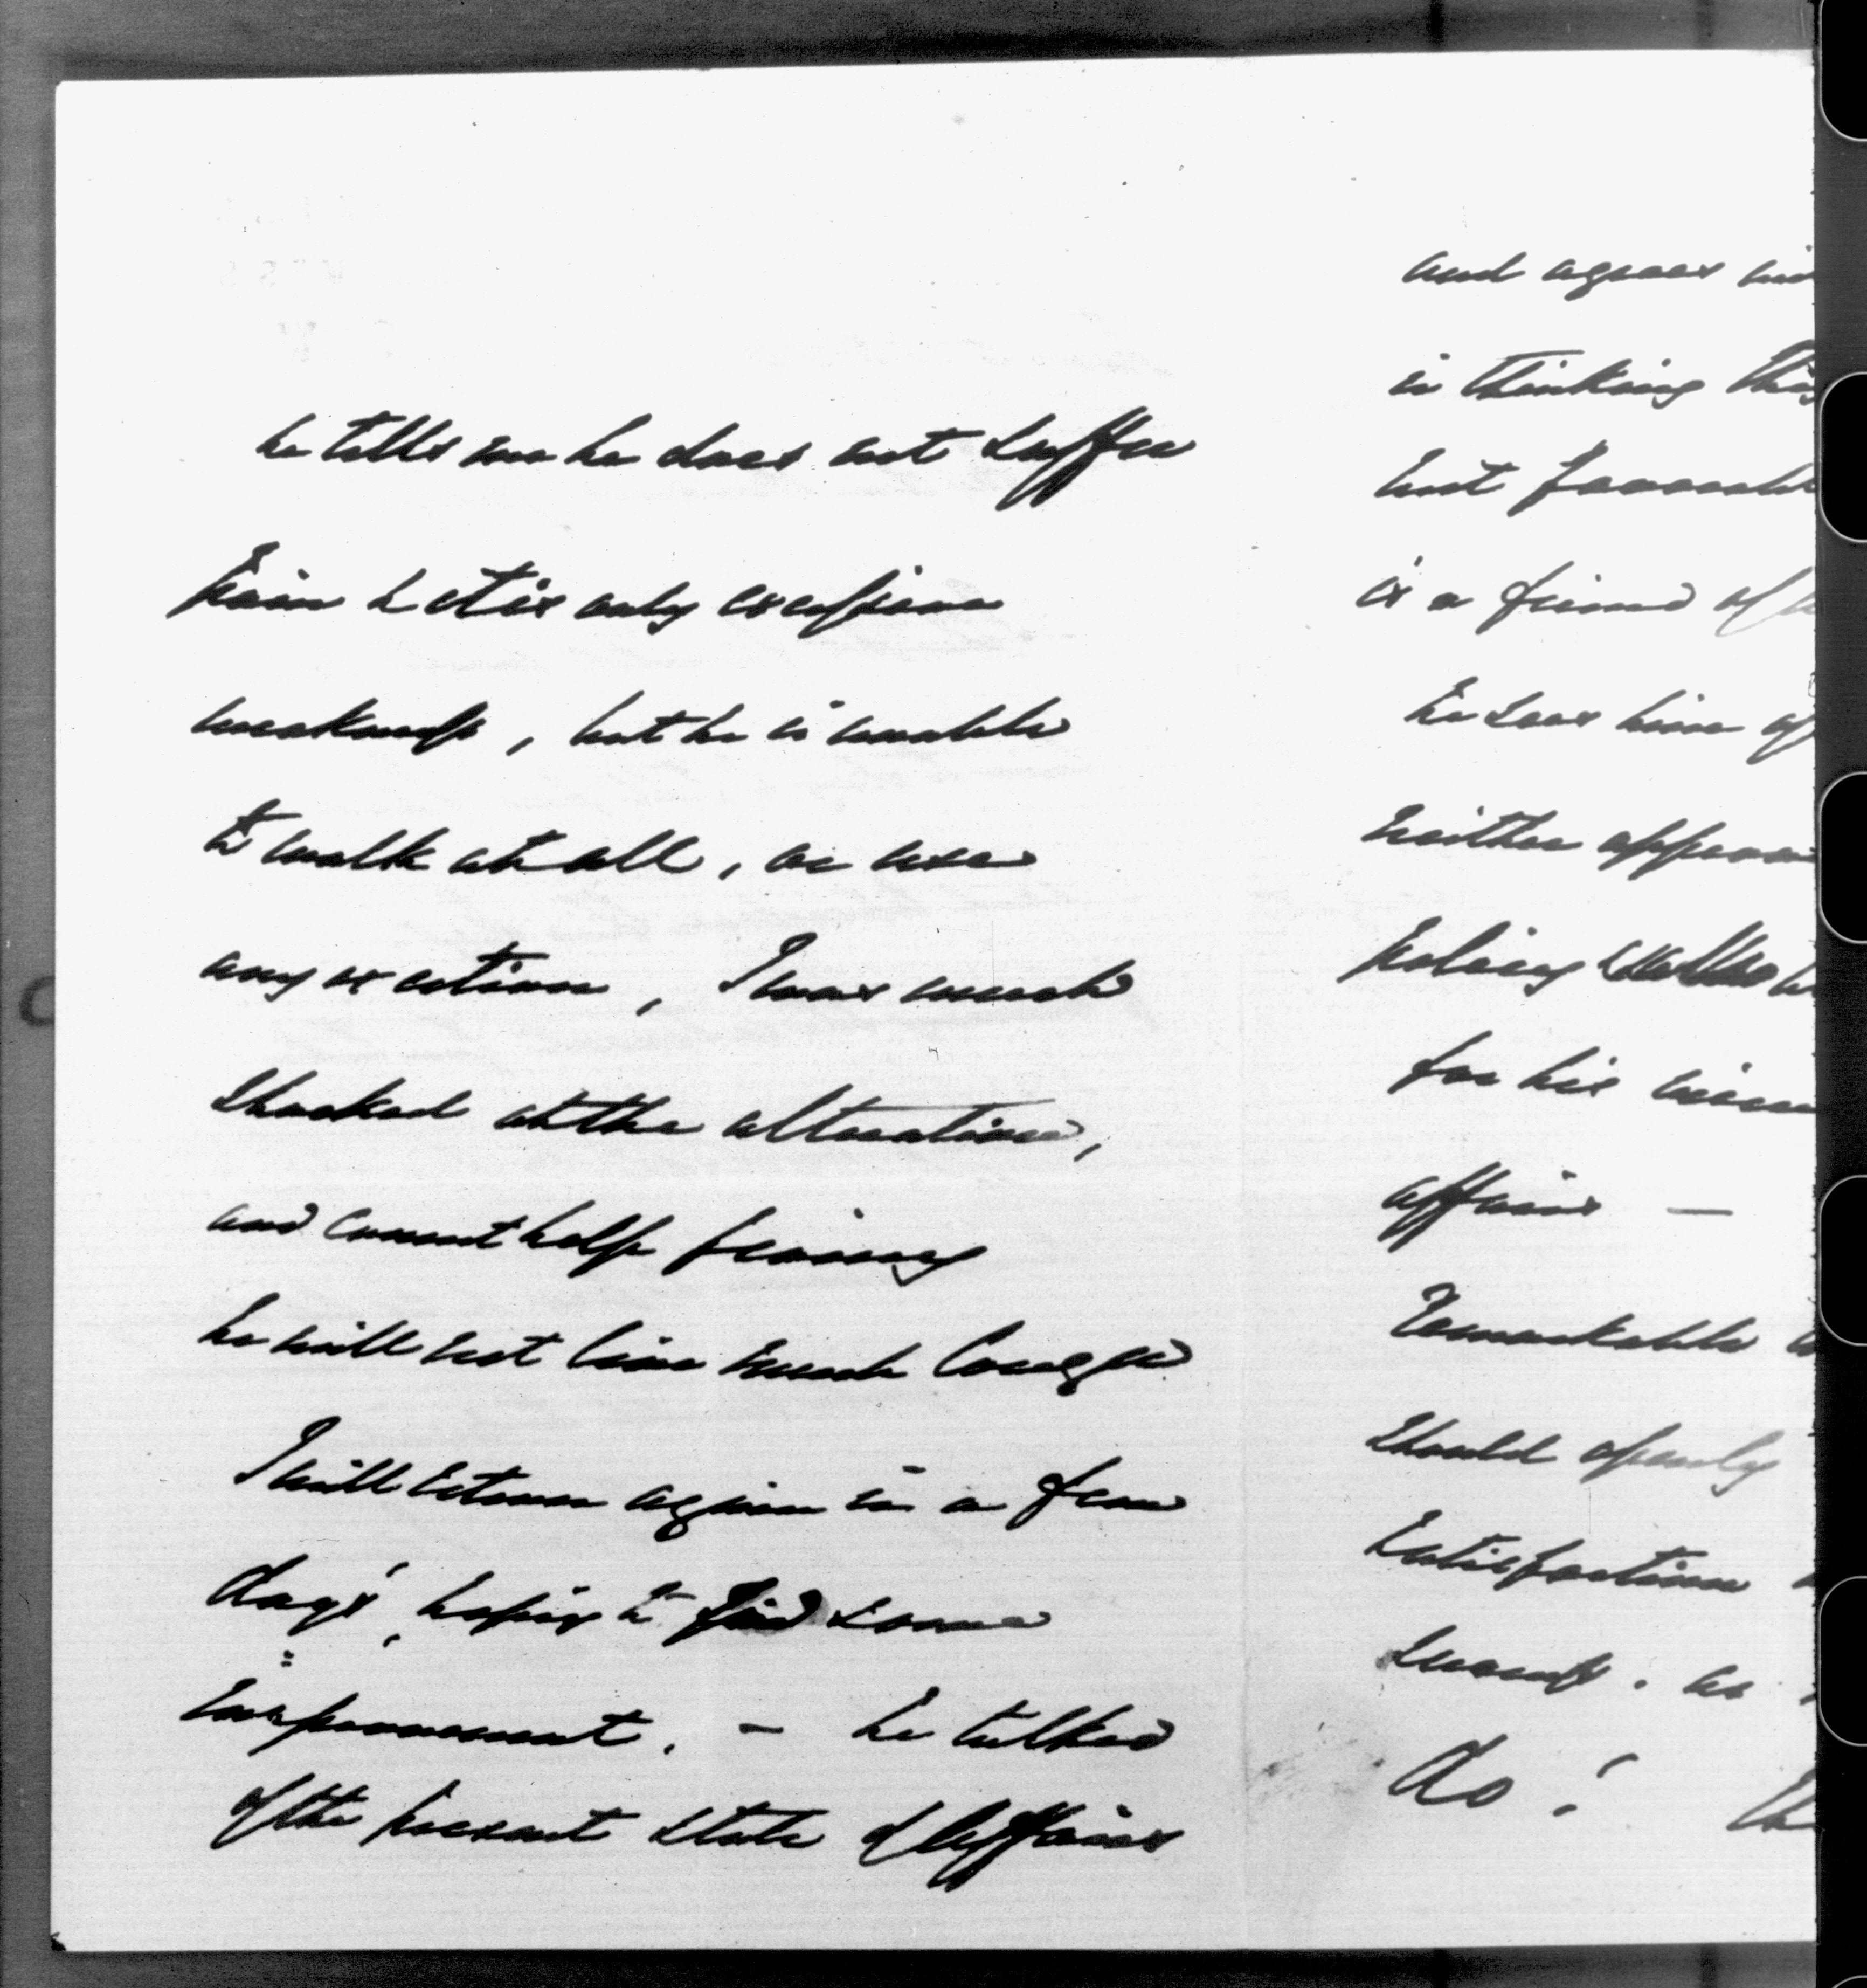 he tells me he does not suffer
pain & it is only excessive
weakness, but he is unable
to walk at all, or use
any exertion, I was much
shocked at the alteration,
and cannot help fearing
he will not live much longer
I will return again in a few
days', hoping to find some
improvement. - he talked
of the present state of affairs
and agrees
in thinking this
but favorable
is a friend of
he sees him
neither
policy
for his
affairs —
Remarkable
should openly
satisfaction
success. as
do!